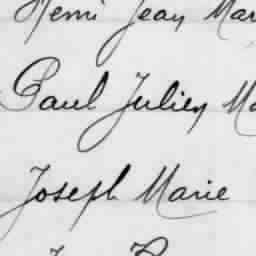 Henri Jean Mar
Paul Julien Ma
Joseph Marie